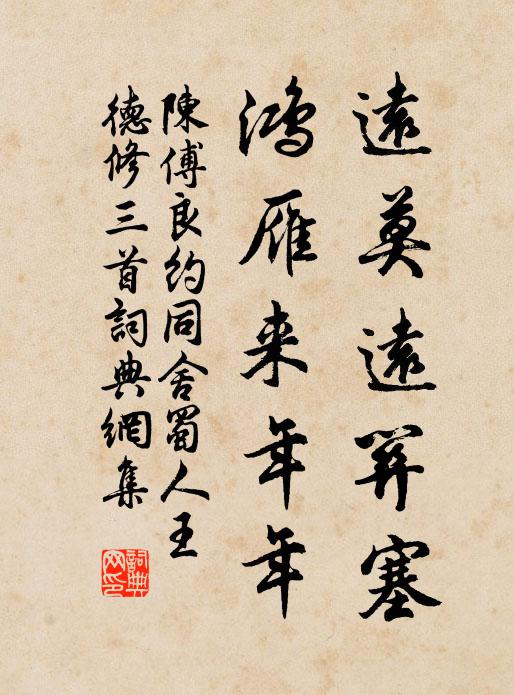 遠莫遠關塞
鴻雁来年年
陳傅良約同舍蜀人王
德修三首詞典網集
詞典
网印